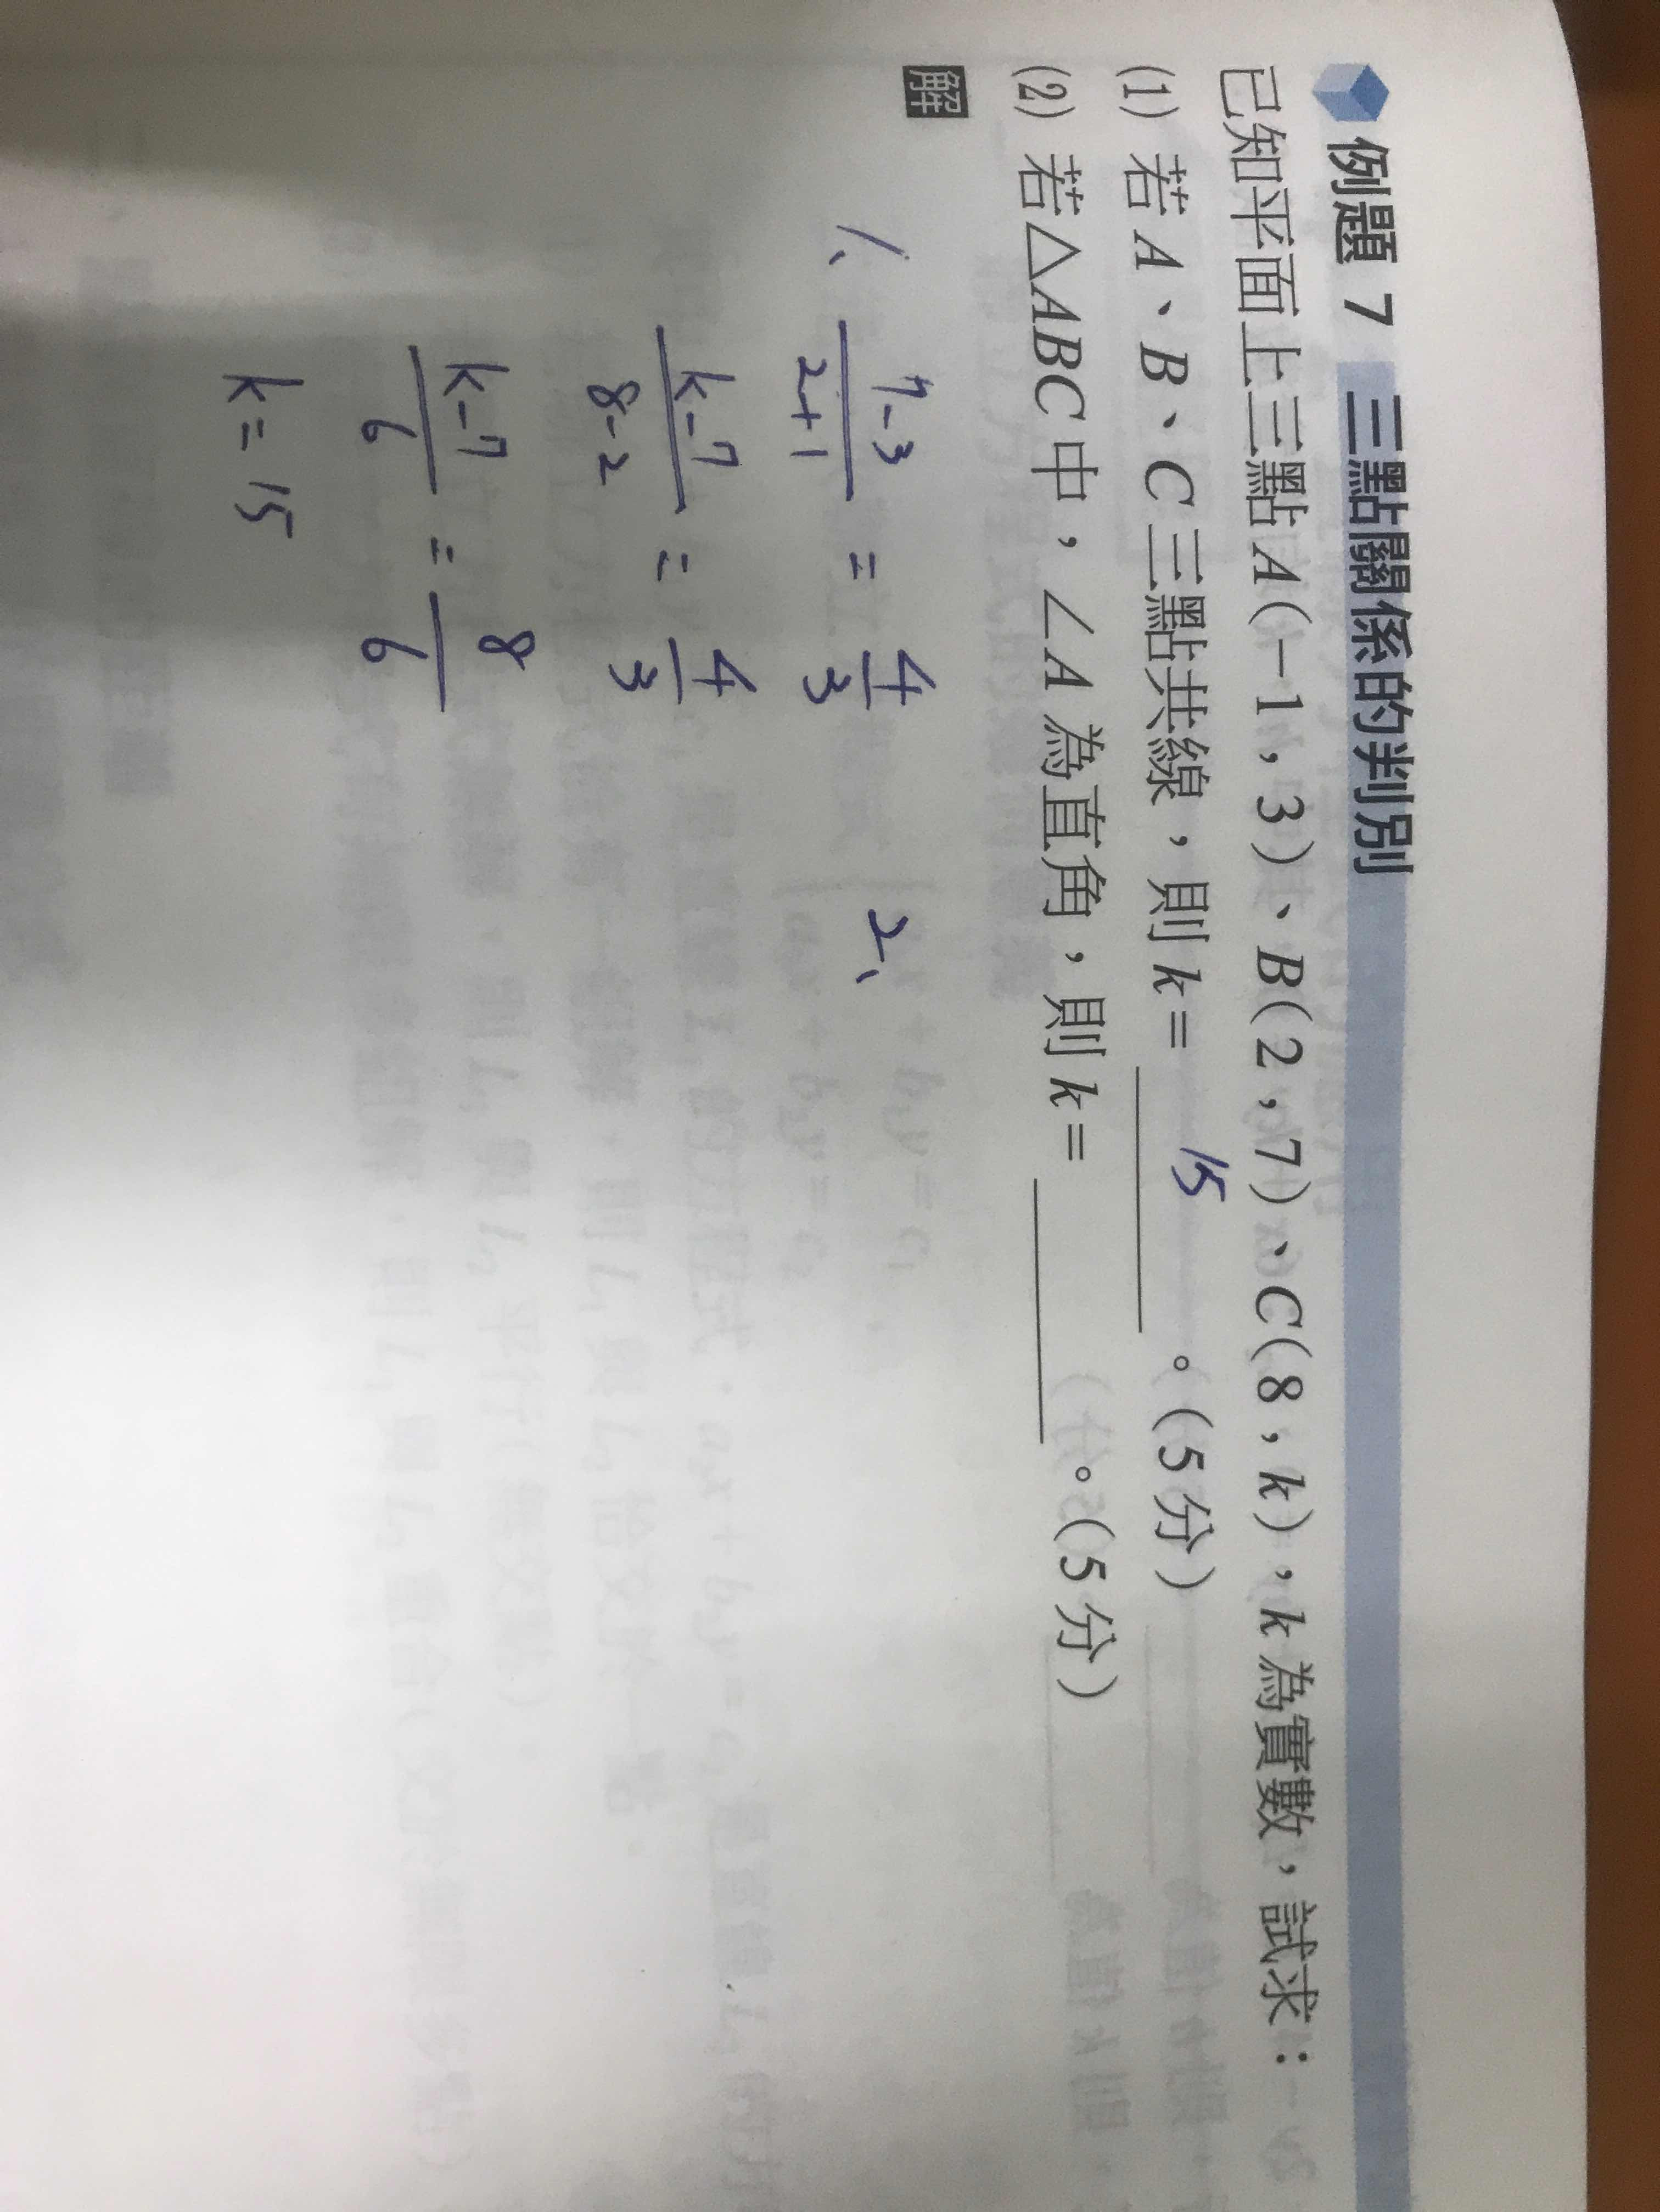 例題 7 三點關係的判別
已知平面上三點A(-1,3)、B(2,7)、C(8,k),k為實數,試求:
(1) 若A、B、C三點共線,則k= 15 。(5分)
(2) 若△ABC中,∠A為直角,則k= ______ 。(5分)
解
1、 7-3/2+1 = 4/3 2、
k-7/8-2 = 4/3
k-7/6 = 8/6
k= 15